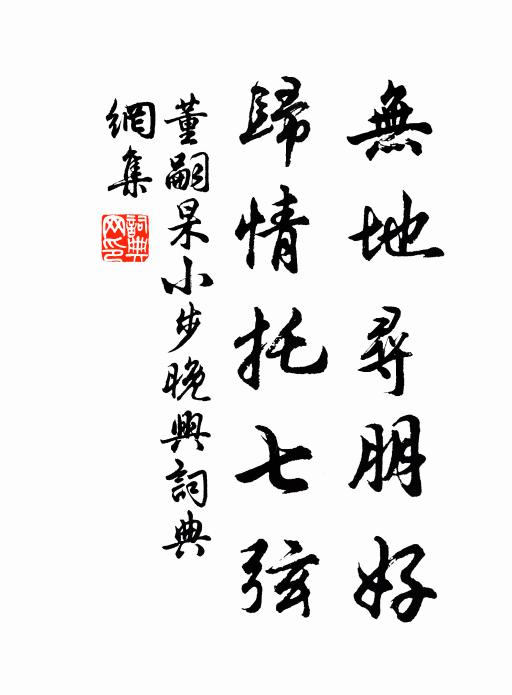 無地尋朋好
歸情托七弦
董嗣杲小步晚興詞典
網集
詞典網印